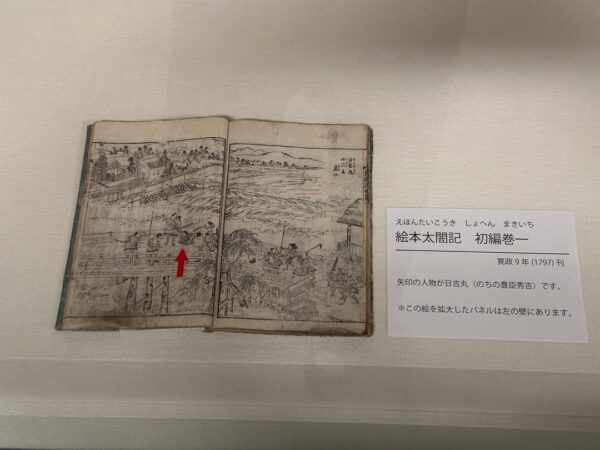 えほんたいこうき　しょへん　まきいち
絵本太閤記　初編巻一
寛政 9 年 (1797) 刊
矢印の人物が日吉丸（のちの豊臣秀吉）です。
※この絵を拡大したパネルは左の壁にあります。